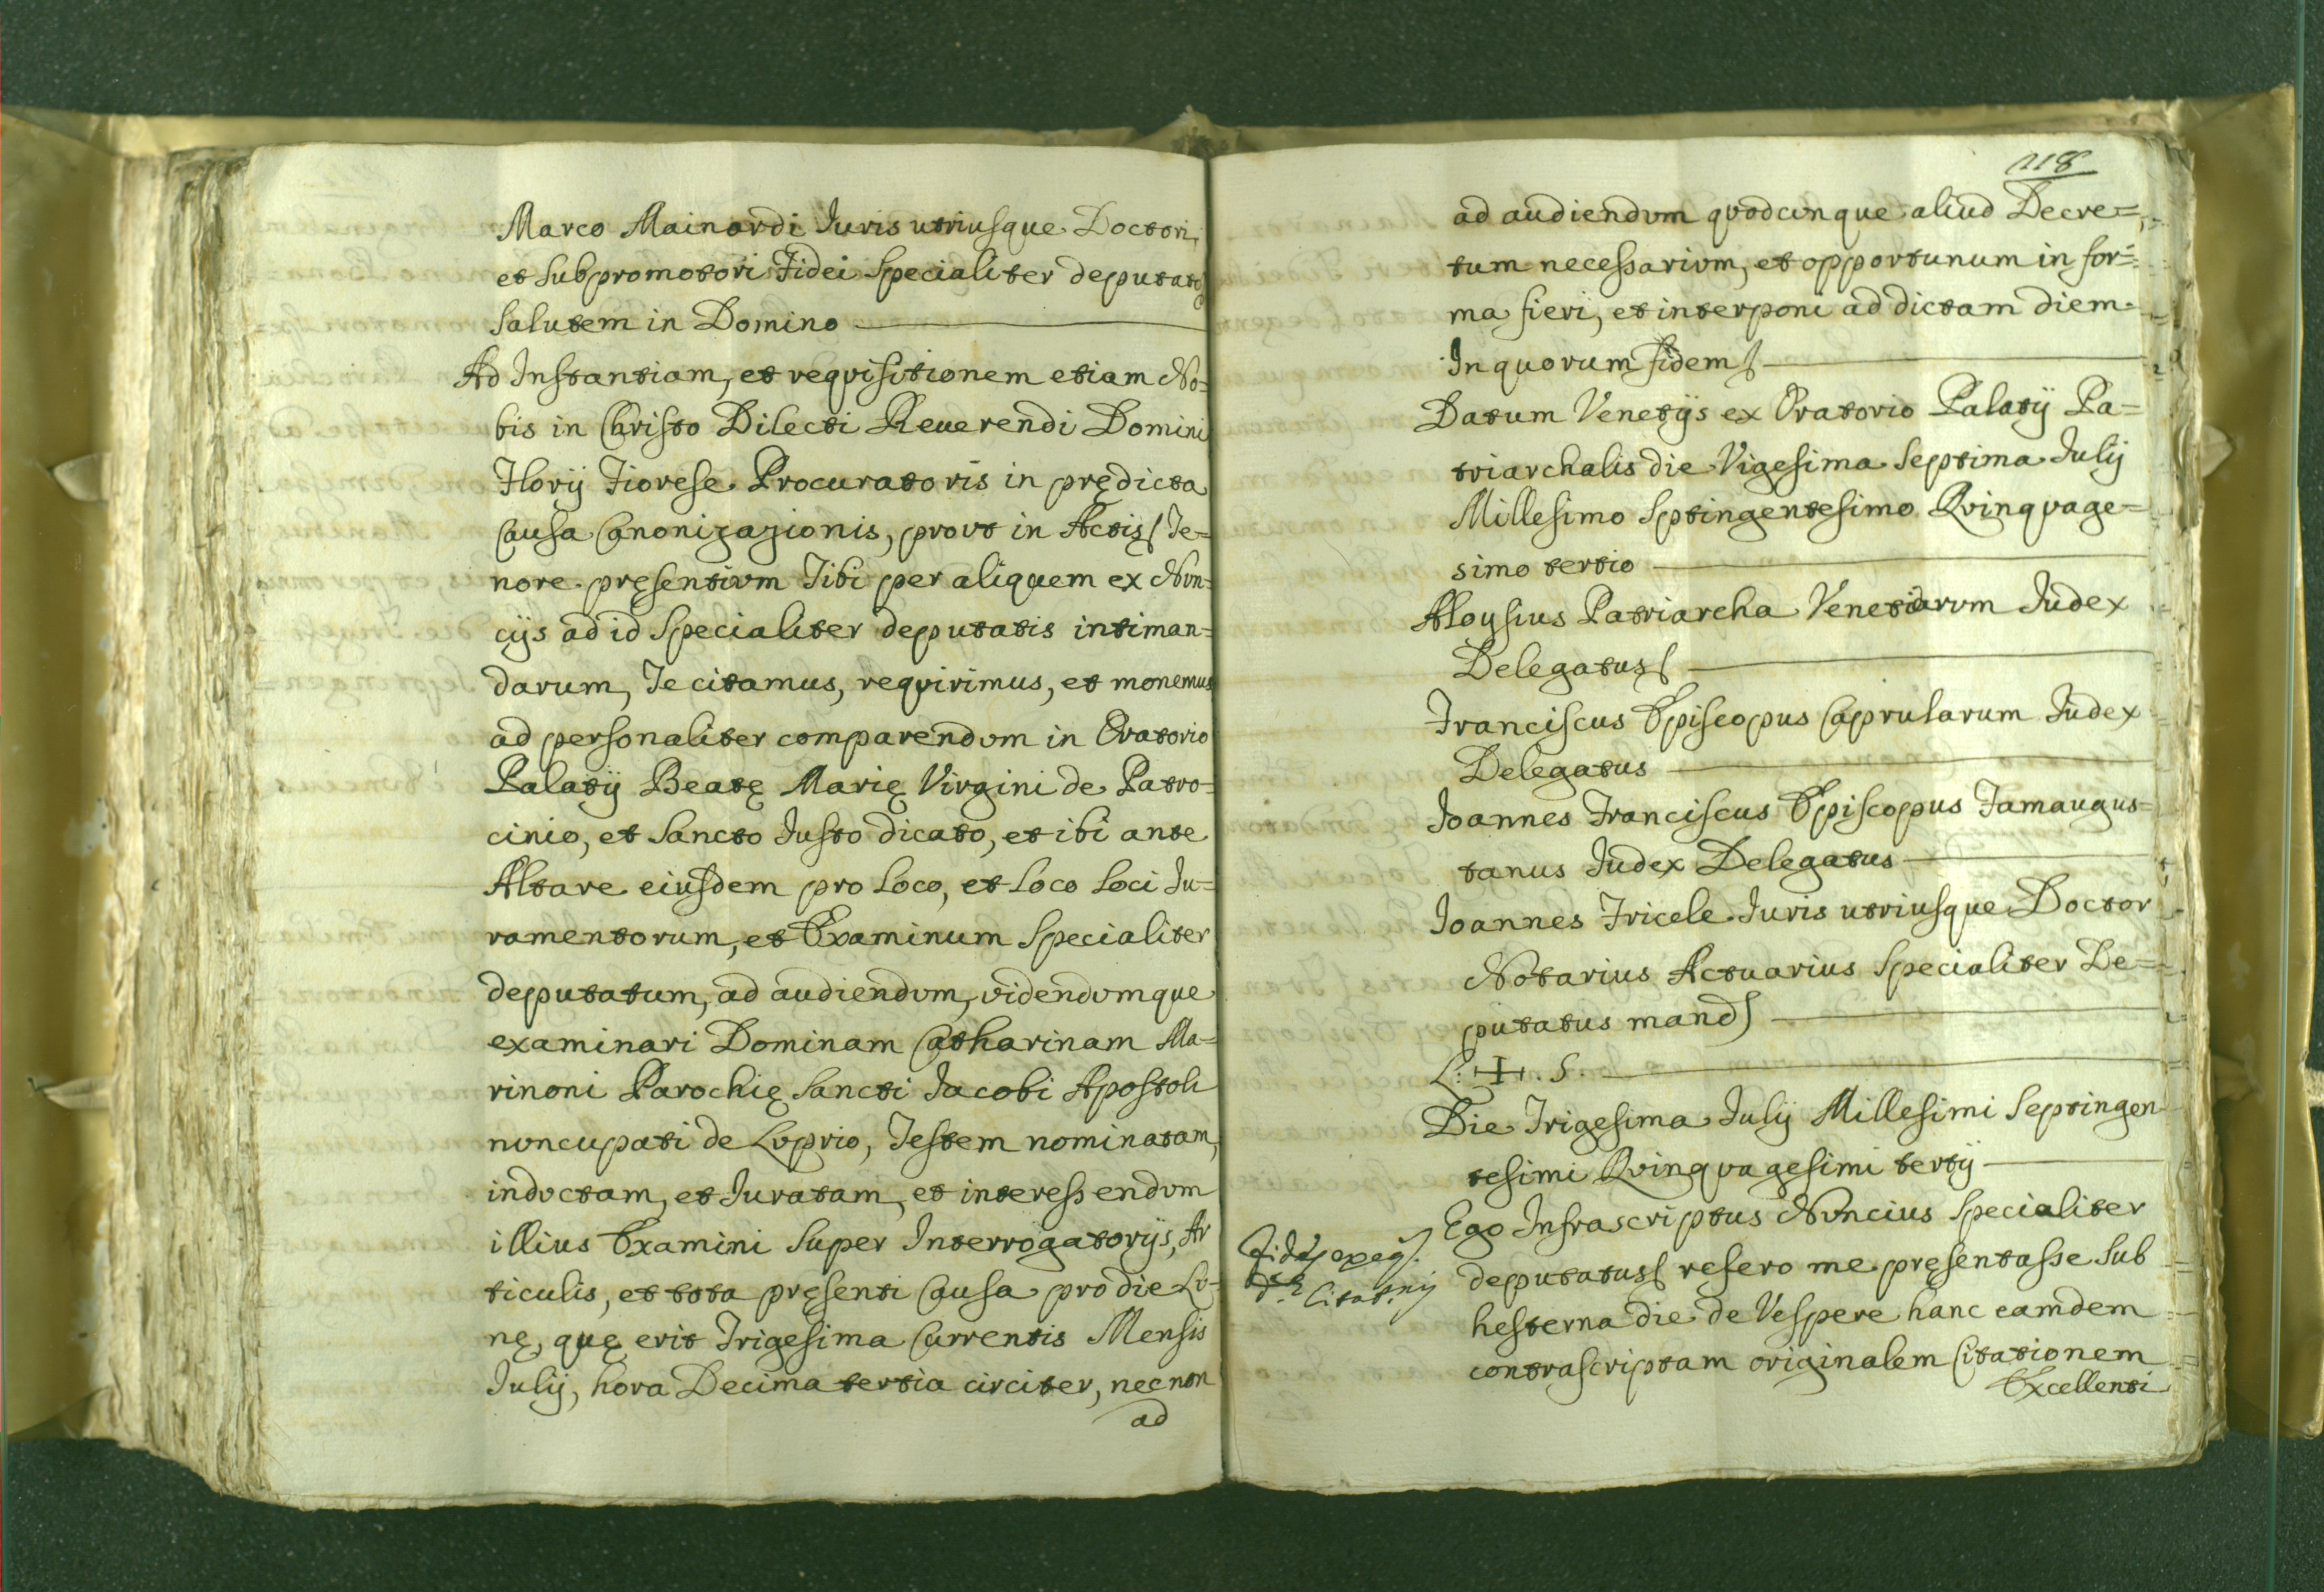 Marco Mainardi Iuris utriusque Doctori,
et Subpromotori Fidei Specialiter deputato
Salutem in Domino
Ad Instantiam, et requisitionem etiam No=
bis in Christo Dilecti Reuerendi Domini
Florij Fiorese Procuratoris in prędicta
Causa Canonizazionis, prout in Actis Te=
nore pręsentium Tibi per aliquem ex Nun=
cijs ad id Specialiter deputatis intiman=
darum, Te citamus, requirimus, et monemus
ad personaliter comparendum in Oratorio
Palatij Beatę Marię Virgini de Patro=
cinio, et Sancto Iusto dicato, et ibi ante
Altare eiusdem pro Loco, et Loco Loci Iu=
ramentorum, et Examinum Specialiter
deputatum, ad audiendum, videndumque
examinari Dominam Catharinam Ma=
rinoni Parochię Sancti Iacobi Apostoli
nuncupati de Luprio, Testem nominatam,
inductam, et Iuratam, et interessendum
illius Examini Super Interrogatorijs, Ar
ticulis, et tota pręsenti Causa pro die Lu=
nę, quę erit Trigesima Currentis Mensis
Iulij, hora Decima tertia circiter, nec non
ad
118
ad audiendum quodcunque aliud Decre=
tum necessarium, et opportunum in for=
ma fieri, et interponi ad dictam diem
In quorum fidem
Datum Venetijs ex Oratorio Palatij Pa=
triarchalis die Vigesima Septima Iulij
Millesimo Sptingentesimo Quinquage=
simo tertio
Aloysius Patriarcha Venetiarum Iudex
Delegatus
Franciscus Episcopus Caprularum Iudex
Delegatus
Ioannes Franciscus Episcopus Famaugus=
tanus Iudex Delegatus
Ioannes Fricele Iuris utriusque Doctor
Notarius Actuarius Specialiter De=
putatus mand
L. ✝ . S.
Die Trigesima Iulij Millesimi Septingen
tesimi Quinquagesimi tertij
Ego Infrascriptus Nuncius Specialiter
deputatus refero me pręsentasse Sub
hesterna die de Vespere hanc eamdem
contrascriptam originalem Citationem
Excellenti